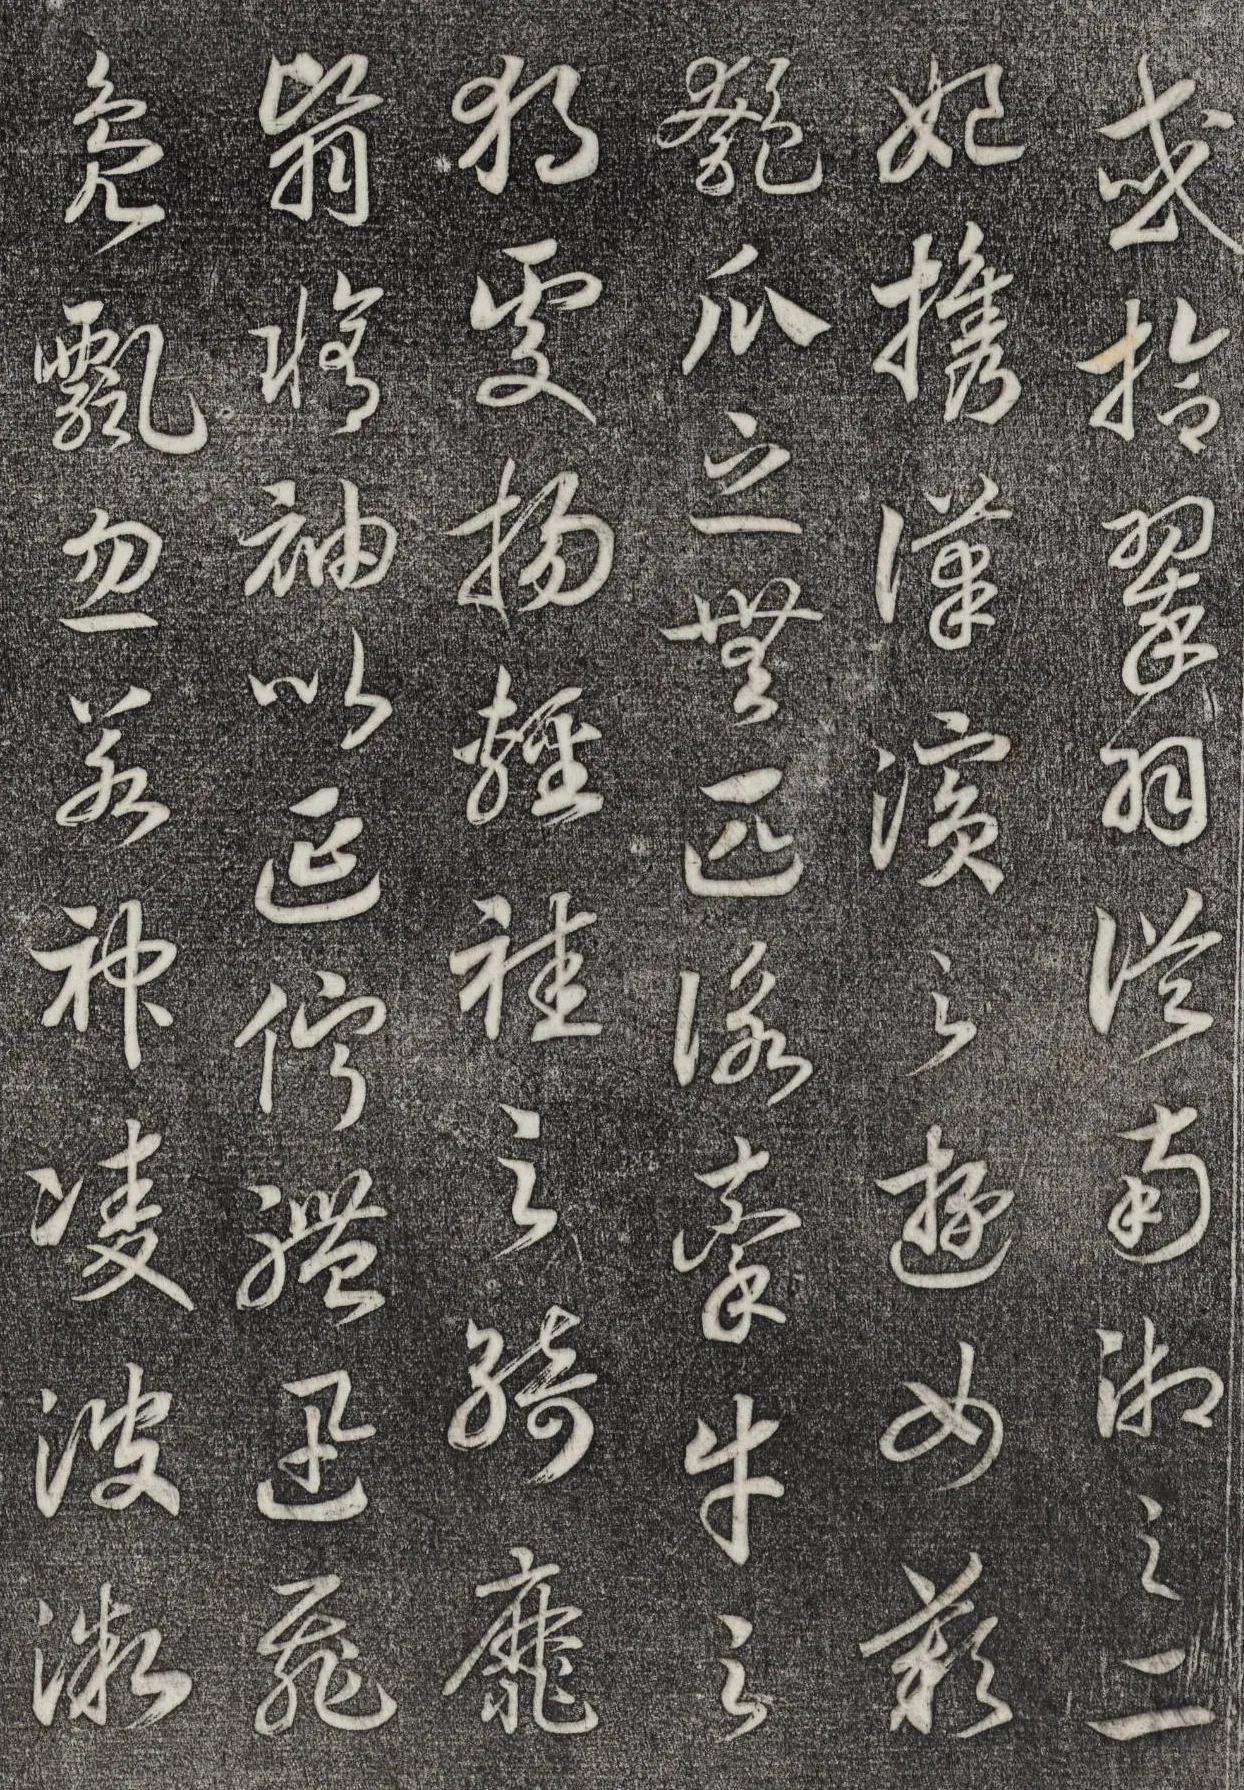 或拾翠羽從南湘之二
妃攜漢濱之遊女歎
匏瓜之無匹詠牽牛之
獨處揚輕袿之綺靡
翳脩袖以延佇體迅飛
鳧飄忽若神凌波微